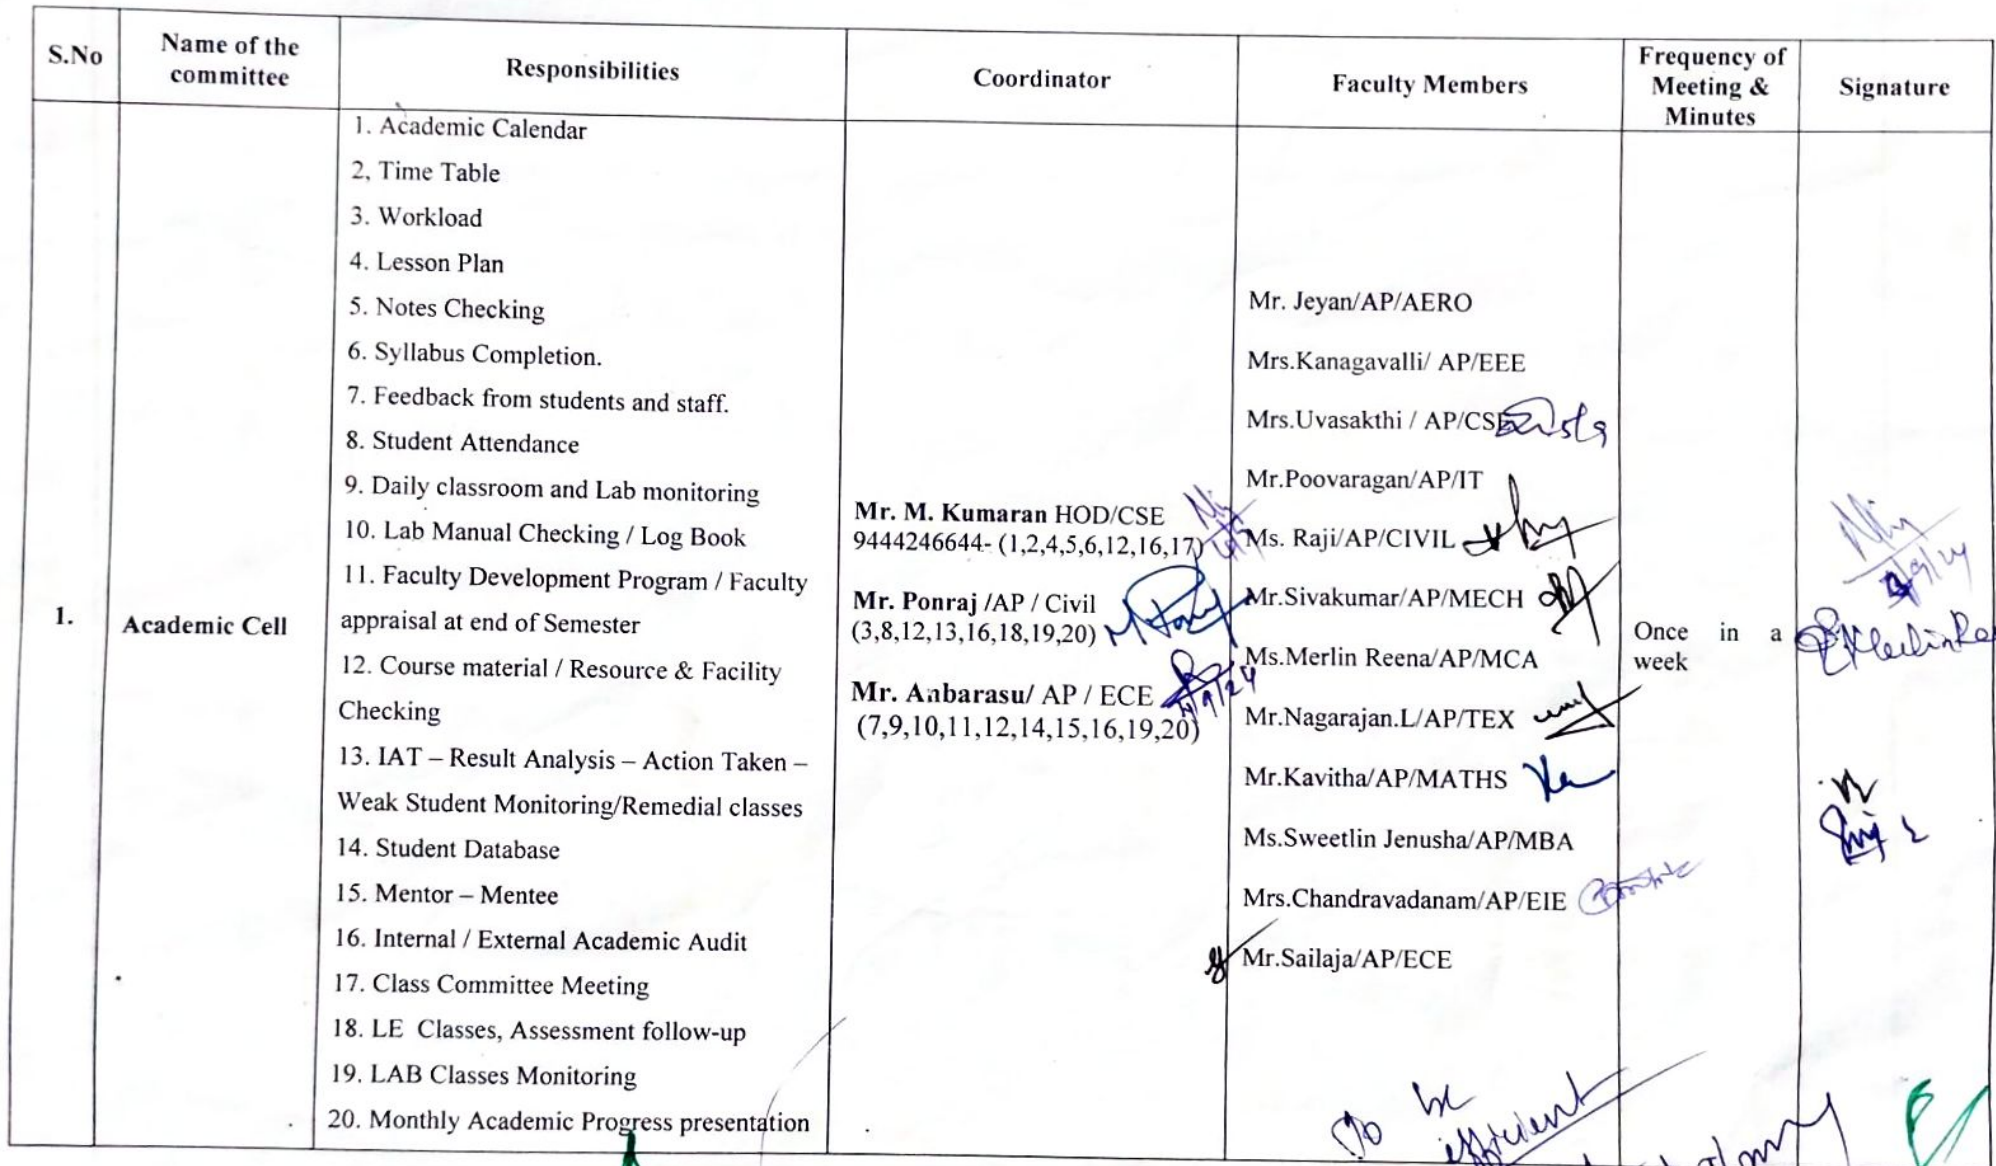 S.No
Name of the
committee
Responsibilities
Coordinator
Faculty Members
Frequency of
Meeting &
Minutes
Signature
1.
Academic Cell
1. Academic Calendar
2, Time Table
3. Workload
4. Lesson Plan
5. Notes Checking
6. Syllabus Completion.
7. Feedback from students and staff.
8. Student Attendance
9. Daily classroom and Lab monitoring
10. Lab Manual Checking / Log Book
11. Faculty Development Program / Faculty
appraisal at end of Semester
12. Course material / Resource & Facility
Checking
13. IAT – Result Analysis – Action Taken –
Weak Student Monitoring/Remedial classes
14. Student Database
15. Mentor – Mentee
16. Internal / External Academic Audit
17. Class Committee Meeting
18. LE Classes, Assessment follow-up
19. LAB Classes Monitoring
20. Monthly Academic Progress presentation
Mr. M. Kumaran HOD/CSE
9444246644- (1,2,4,5,6,12,16,17)
Mr. Ponraj /AP / Civil
(3,8,12,13,16,18,19,20)
Mr. Anbarasu/ AP / ECE
(7,9,10,11,12,14,15,16,19,20)
Mr. Jeyan/AP/AERO
Mrs.Kanagavalli/ AP/EEE
Mrs.Uvasakthi / AP/CSE
Mr.Poovaragan/AP/IT
Ms. Raji/AP/CIVIL
Mr.Sivakumar/AP/MECH
Ms.Merlin Reena/AP/MCA
Mr.Nagarajan.L/AP/TEX
Mr.Kavitha/AP/MATHS
Ms.Sweetlin Jenusha/AP/MBA
Mrs.Chandravadanam/AP/EIE
Mr.Sailaja/AP/ECE
Once in a
week
To be
efficient